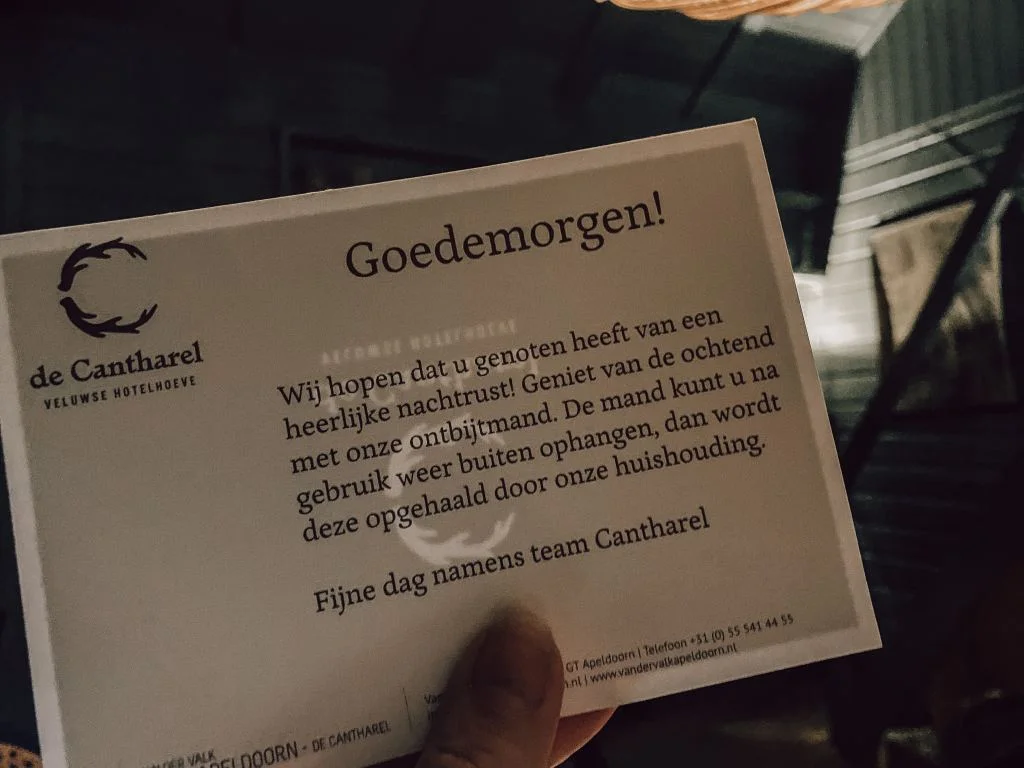 Goedemorgen!
de Cantharel
VELUWSE HOTELHOEVE
Wij hopen dat u genoten heeft van een
heerlijke nachtrust! Geniet van de ochtend
met onze ontbijtmand. De mand kunt u na
gebruik weer buiten ophangen, dan wordt
deze opgehaald door onze huishouding.
Fijne dag namens team Cantharel
GT Apeldoorn | Telefoon +31 (0) 55 541 44 55
.nl | www.vandervalkapeldoorn.nl
VALK
- DE CANTHAREL